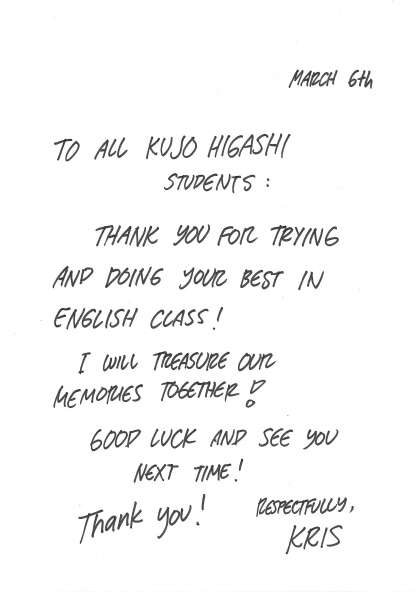 MARCH 6th
TO ALL KUJO HIGASHI
STUDENTS:
THANK YOU FOR TRYING
AND DOING YOUR BEST IN
ENGLISH CLASS!
I WILL TREASURE OUR
MEMORIES TOGETHER!
GOOD LUCK AND SEE YOU
NEXT TIME!
Thank you!
RESPECTFULLY,
KRIS